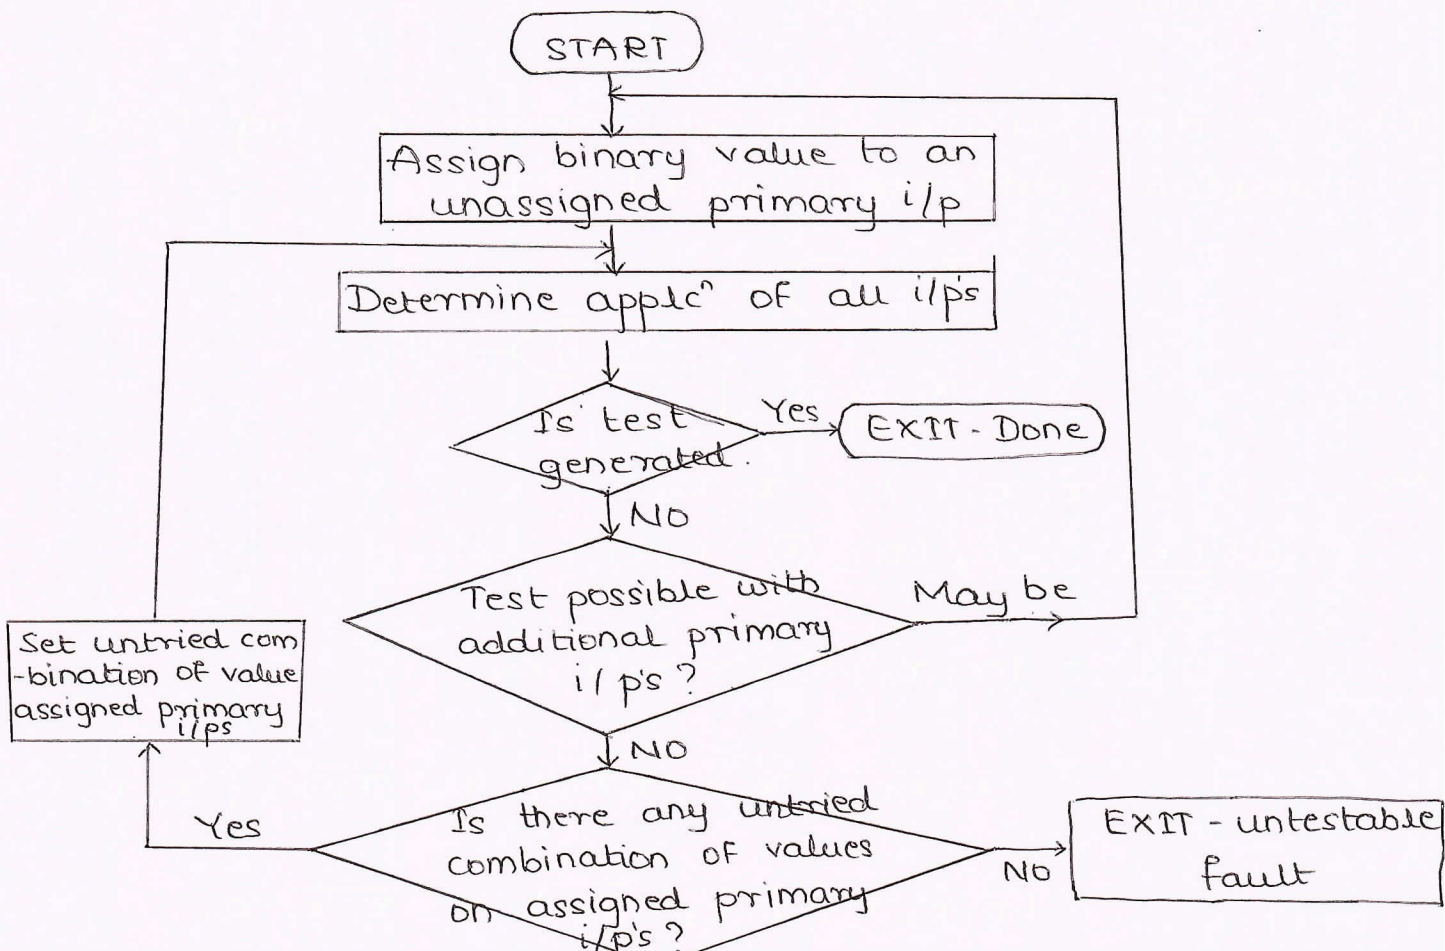 START
Assign binary value to an
unassigned primary i/p
Determine applcⁿ of all i/p's
Is test
generated.
Yes
EXIT - Done
NO
Test possible with
additional primary
i/p's ?
May be
Set untried com
-bination of value
assigned primary
i/ps
NO
Yes
Is there any untried
combination of values
on assigned primary
i/p's ?
NO
EXIT - untestable
fault